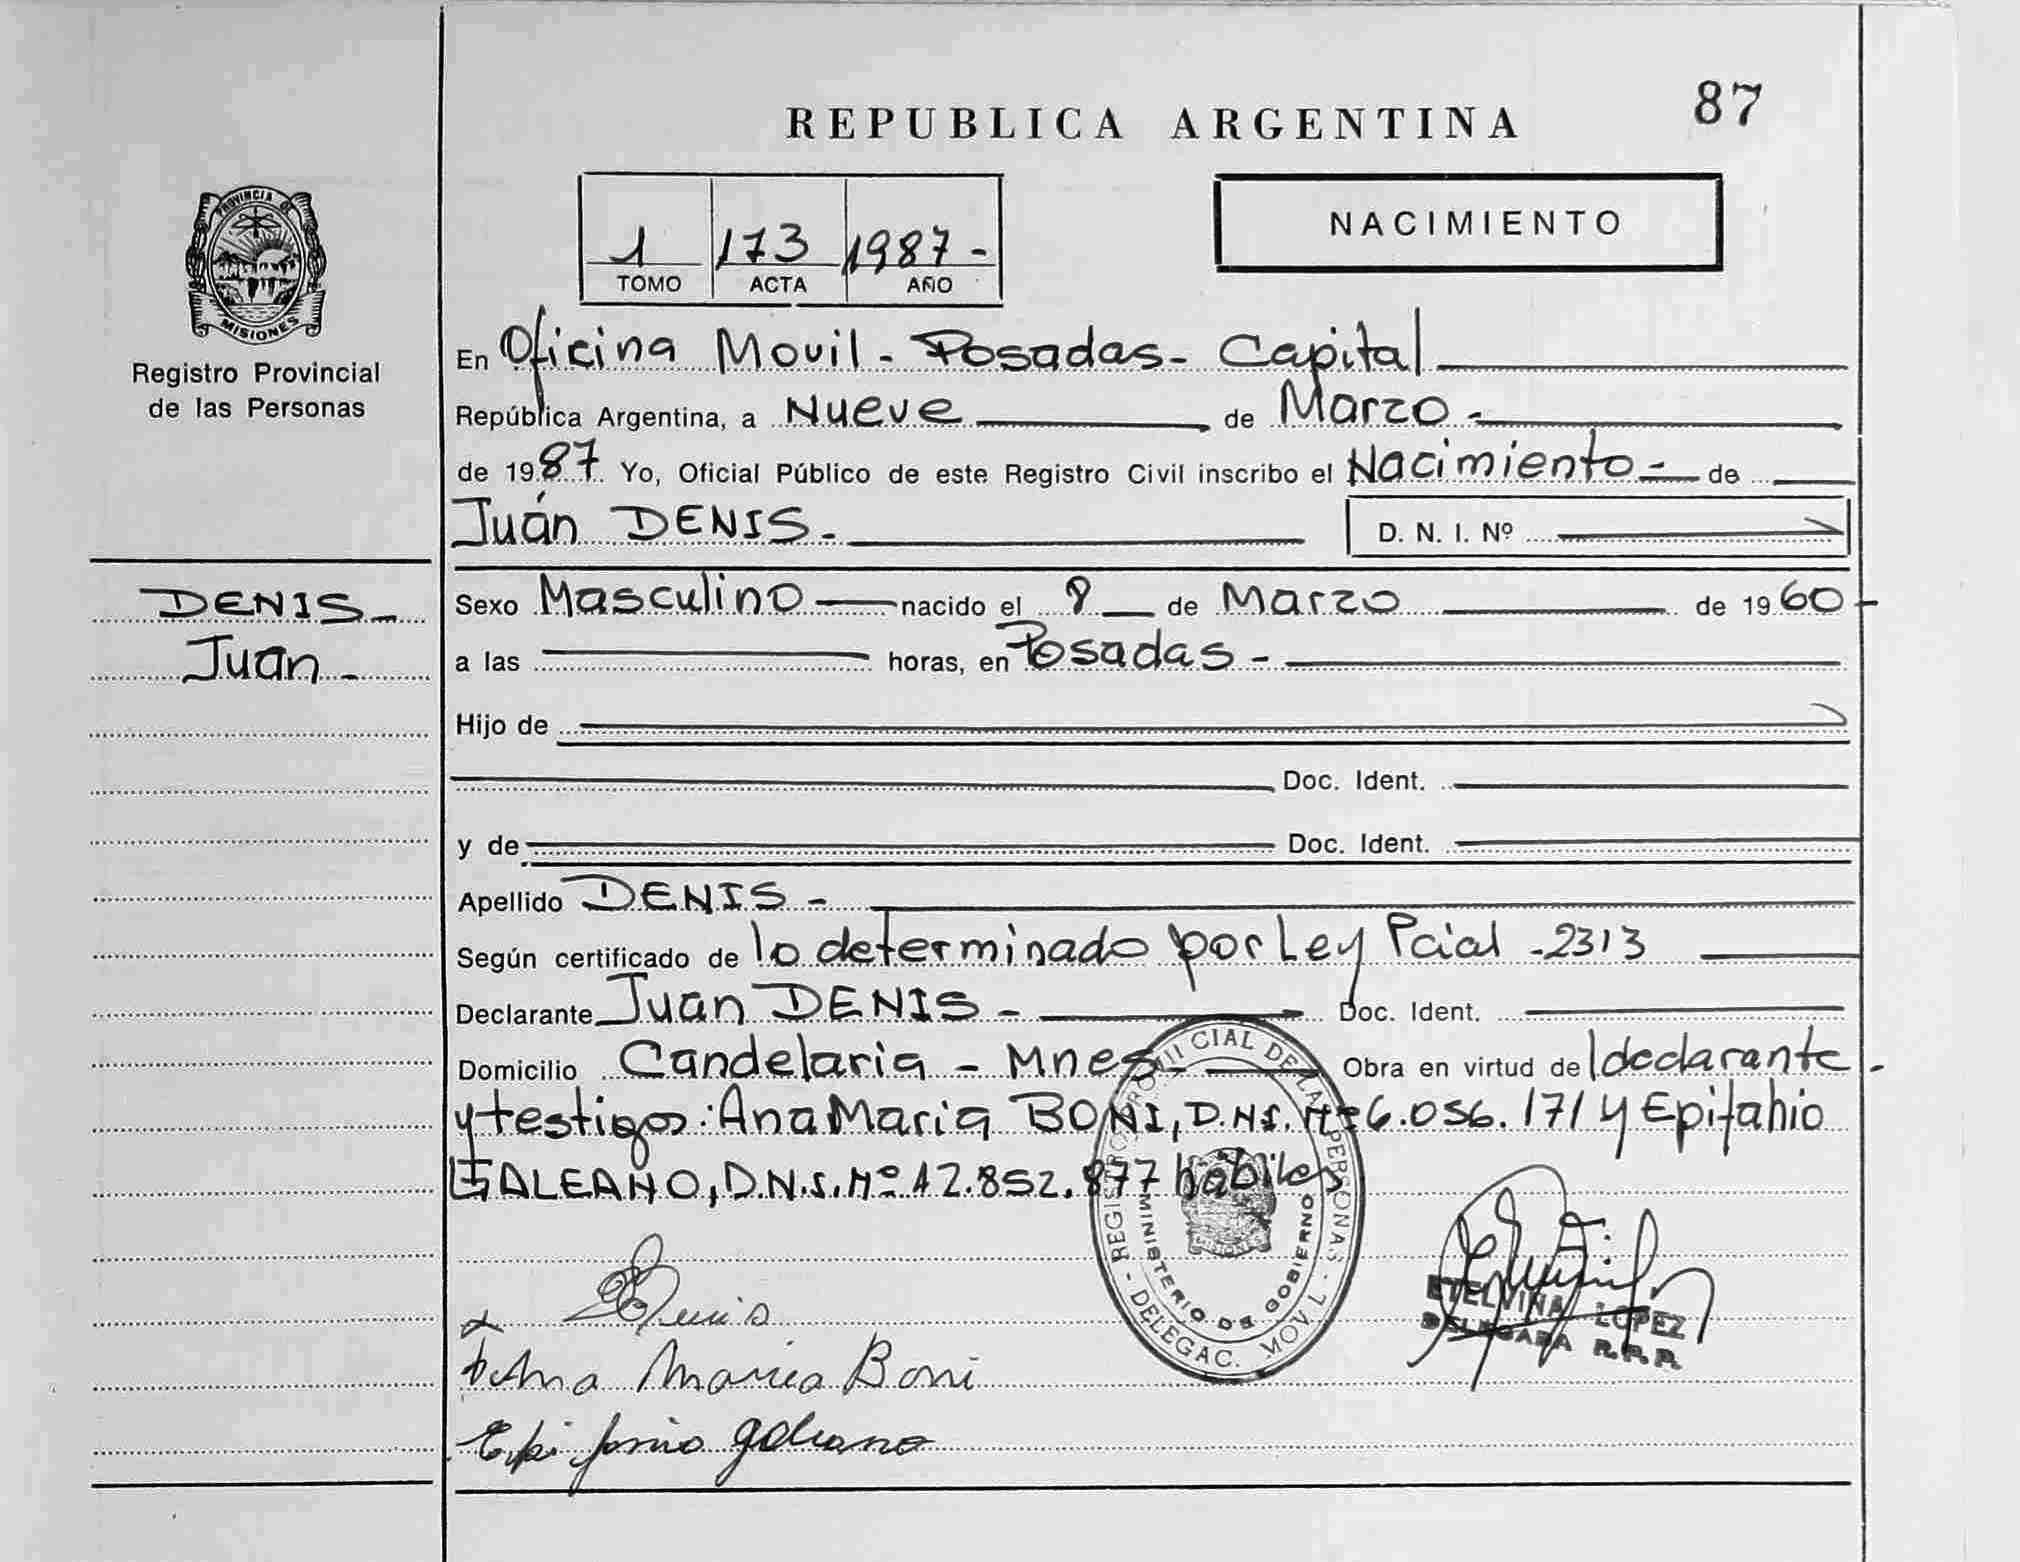 87
REPUBLICA ARGENTINA
1 173 1987-
TOMO ACTA AÑO
NACIMIENTO
PROVINCIA DE
MISIONES
Registro Provincial
de las Personas
DENIS-
Juan-
En Oficina Movil - Posadas - Capital
República Argentina, a Nueve de Marzo-
de 1987. Yo, Oficial Público de este Registro Civil inscribo el Nacimiento- de
Juán DENIS- D. N. I. Nº
Sexo Masculino nacido el 8 de Marzo de 1960-
a las horas, en Posadas-
Hijo de
Doc. Ident.
y de Doc. Ident.
Apellido DENIS-
Según certificado de lo determinado por Ley Pcial -2313
Declarante Juan DENIS- Doc. Ident.
Domicilio Candelaria - Mnes- Obra en virtud de l declarante-
y testigos: Ana Maria BONI, D.N.I. Nº 6.056.171 y Epifanio
GALEANO, D.N.I. Nº 12.852.877 hábiles
REGISTRO PROVINCIAL DE LAS PERSONAS - DELEGAC. MOVIL -
MINISTERIO DE GOBIERNO
Denis
Ana Maria Boni
Epifanio galeano
ETELVINA LOPEZ
DELEGADA R.P.P.